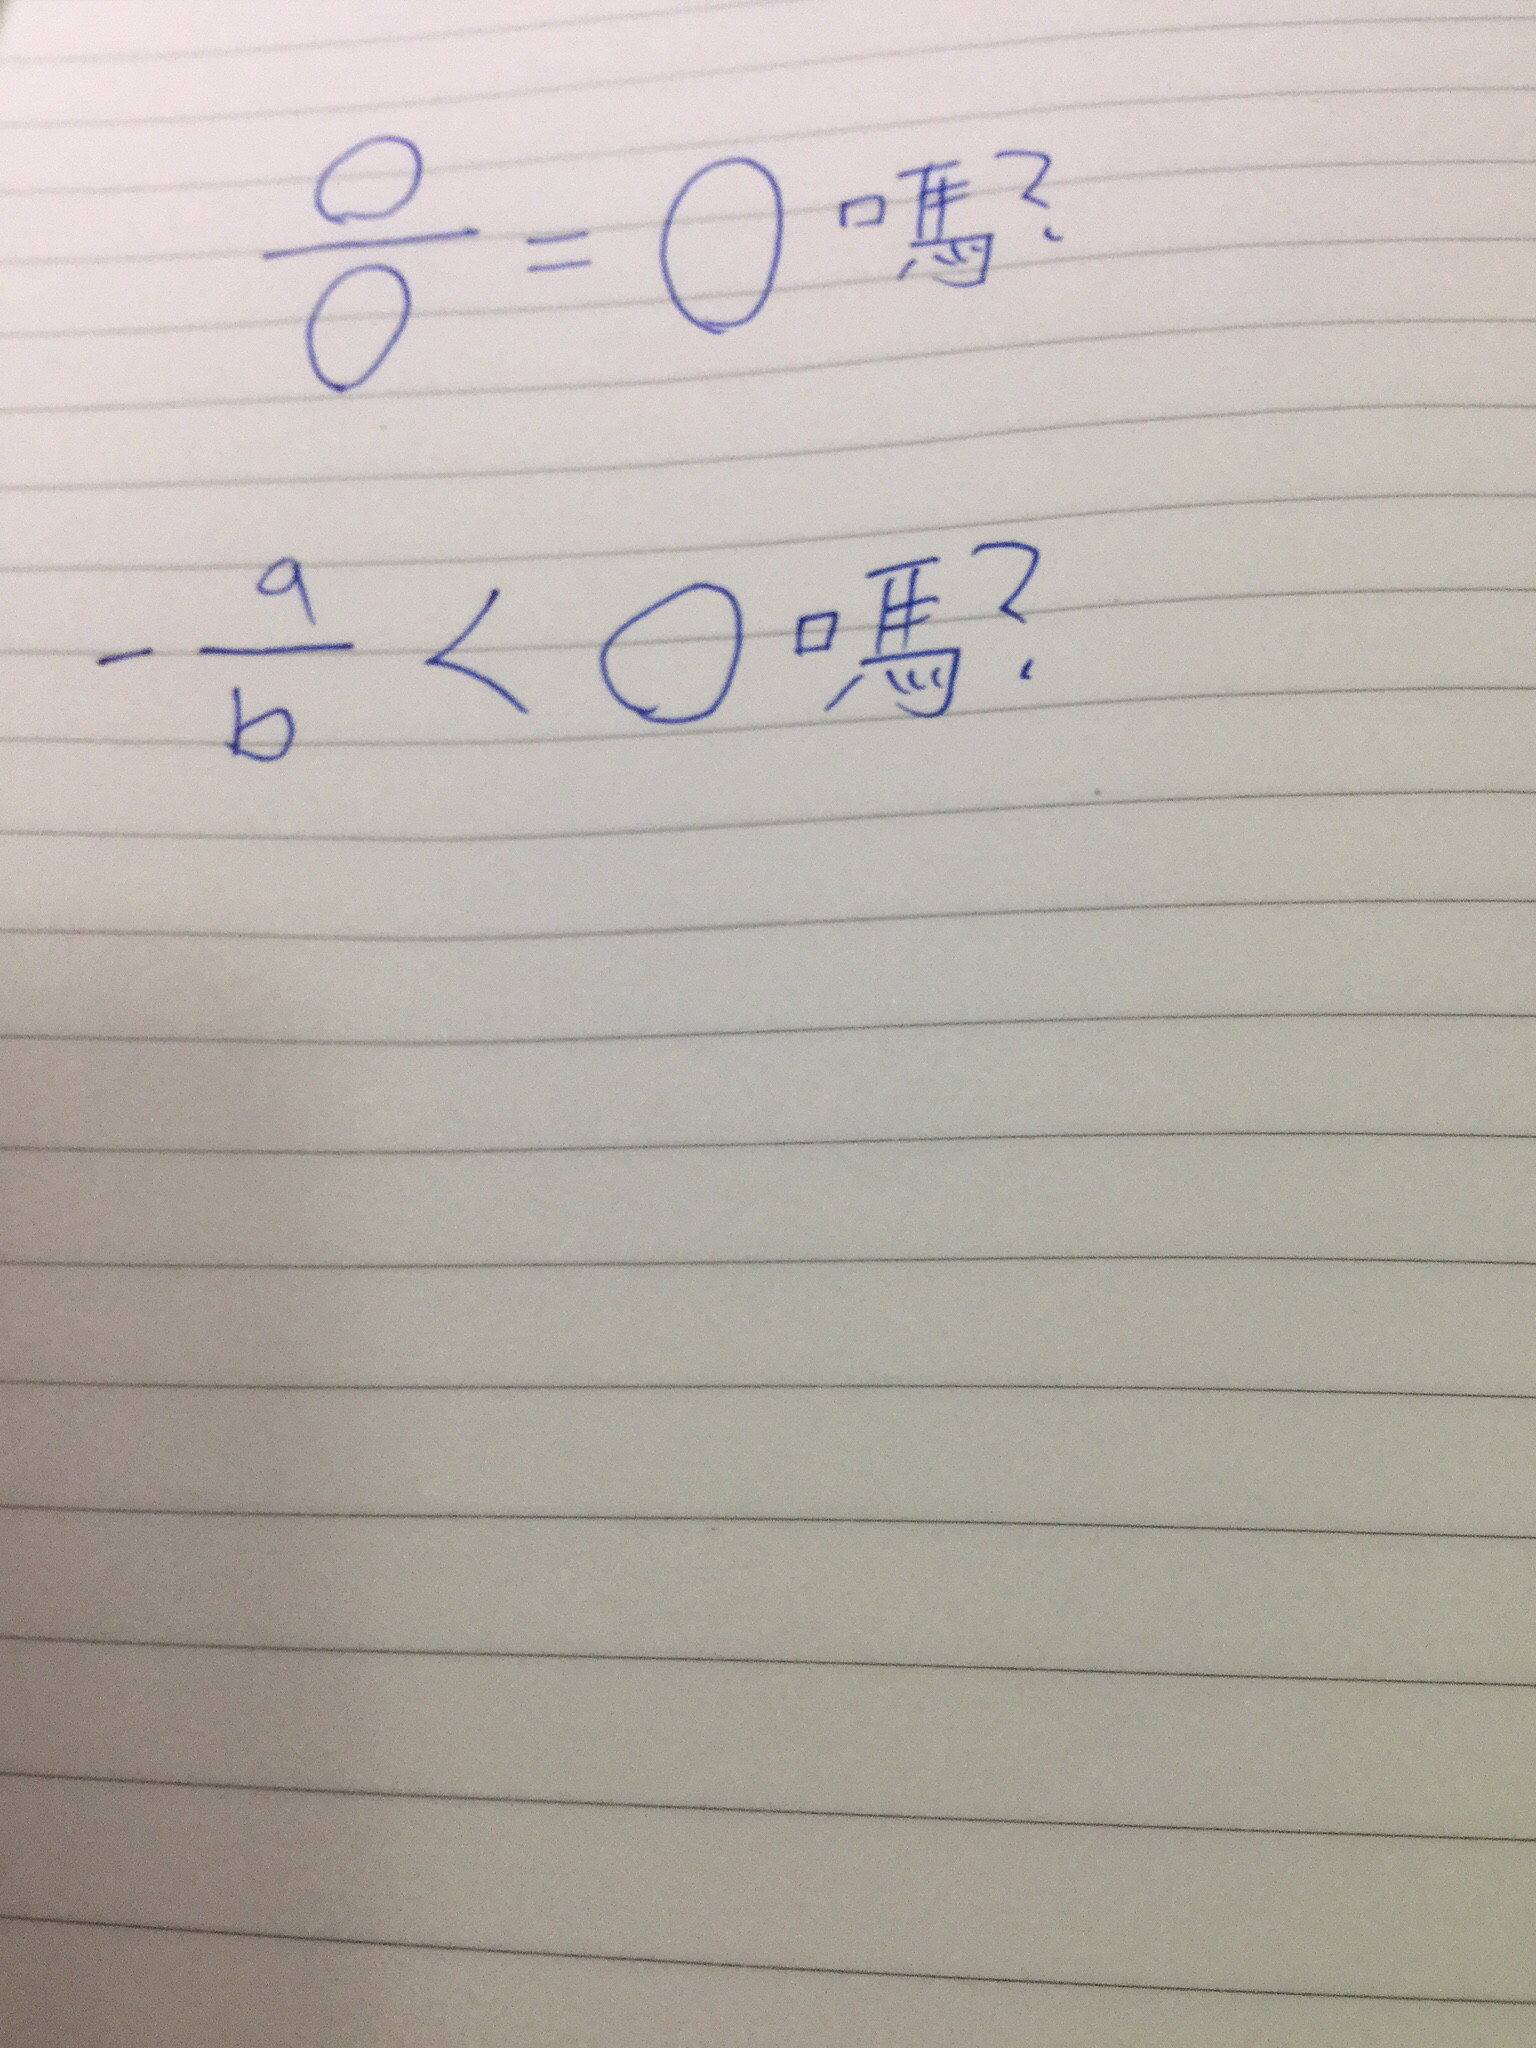 0/0 = 0 嗎?
- a/b < 0 嗎?